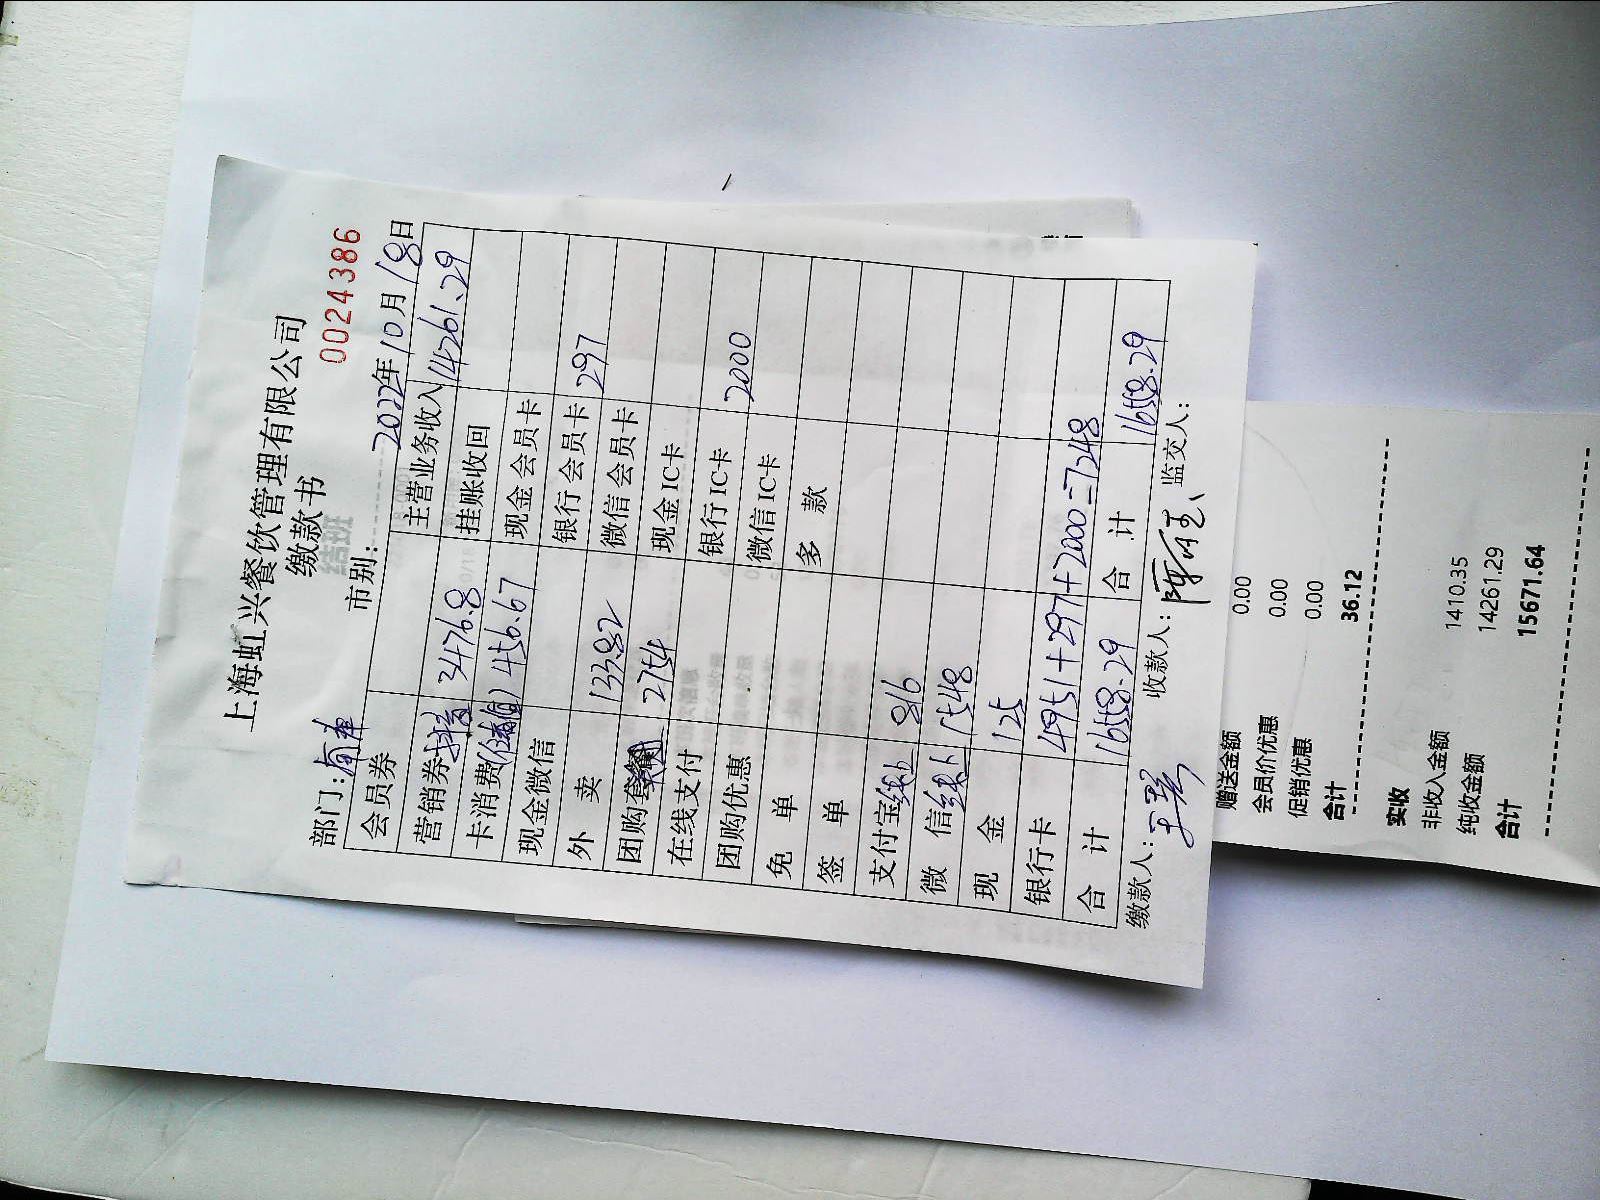 上海虹兴餐饮管理有限公司
缴款书
0024386
部门: 市别: 2022年10月18日
会员券 主营业务收入 14261.29
营销券抖音 3476.8 挂账收回
卡消费(储值) 456.67 现金会员卡
现金微信 银行会员卡
外 卖 1338.2 微信会员卡 297
团购套餐 2754 现金IC卡
在线支付 银行IC卡
团购优惠 微信IC卡 2000
免 单 多 款
签 单
支付宝线下 816
微 信线下 1548
现 金 125
银行卡 4951+297+2000=7248
合 计 16558.29 合 计 16558.29
缴款人: 收款人: 监交人:
赠送金额 0.00
会员价优惠 0.00
促销优惠 0.00
合计 36.12
实收
非收入金额 1410.35
纯收金额 14261.29
合计 15671.64